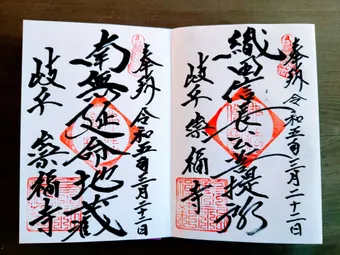 奉拝 令和五年三月二十二日
織田信長菩提所
岐阜 崇福寺
奉拝 令和五年三月二十二日
南無延命地蔵
岐阜 崇福寺